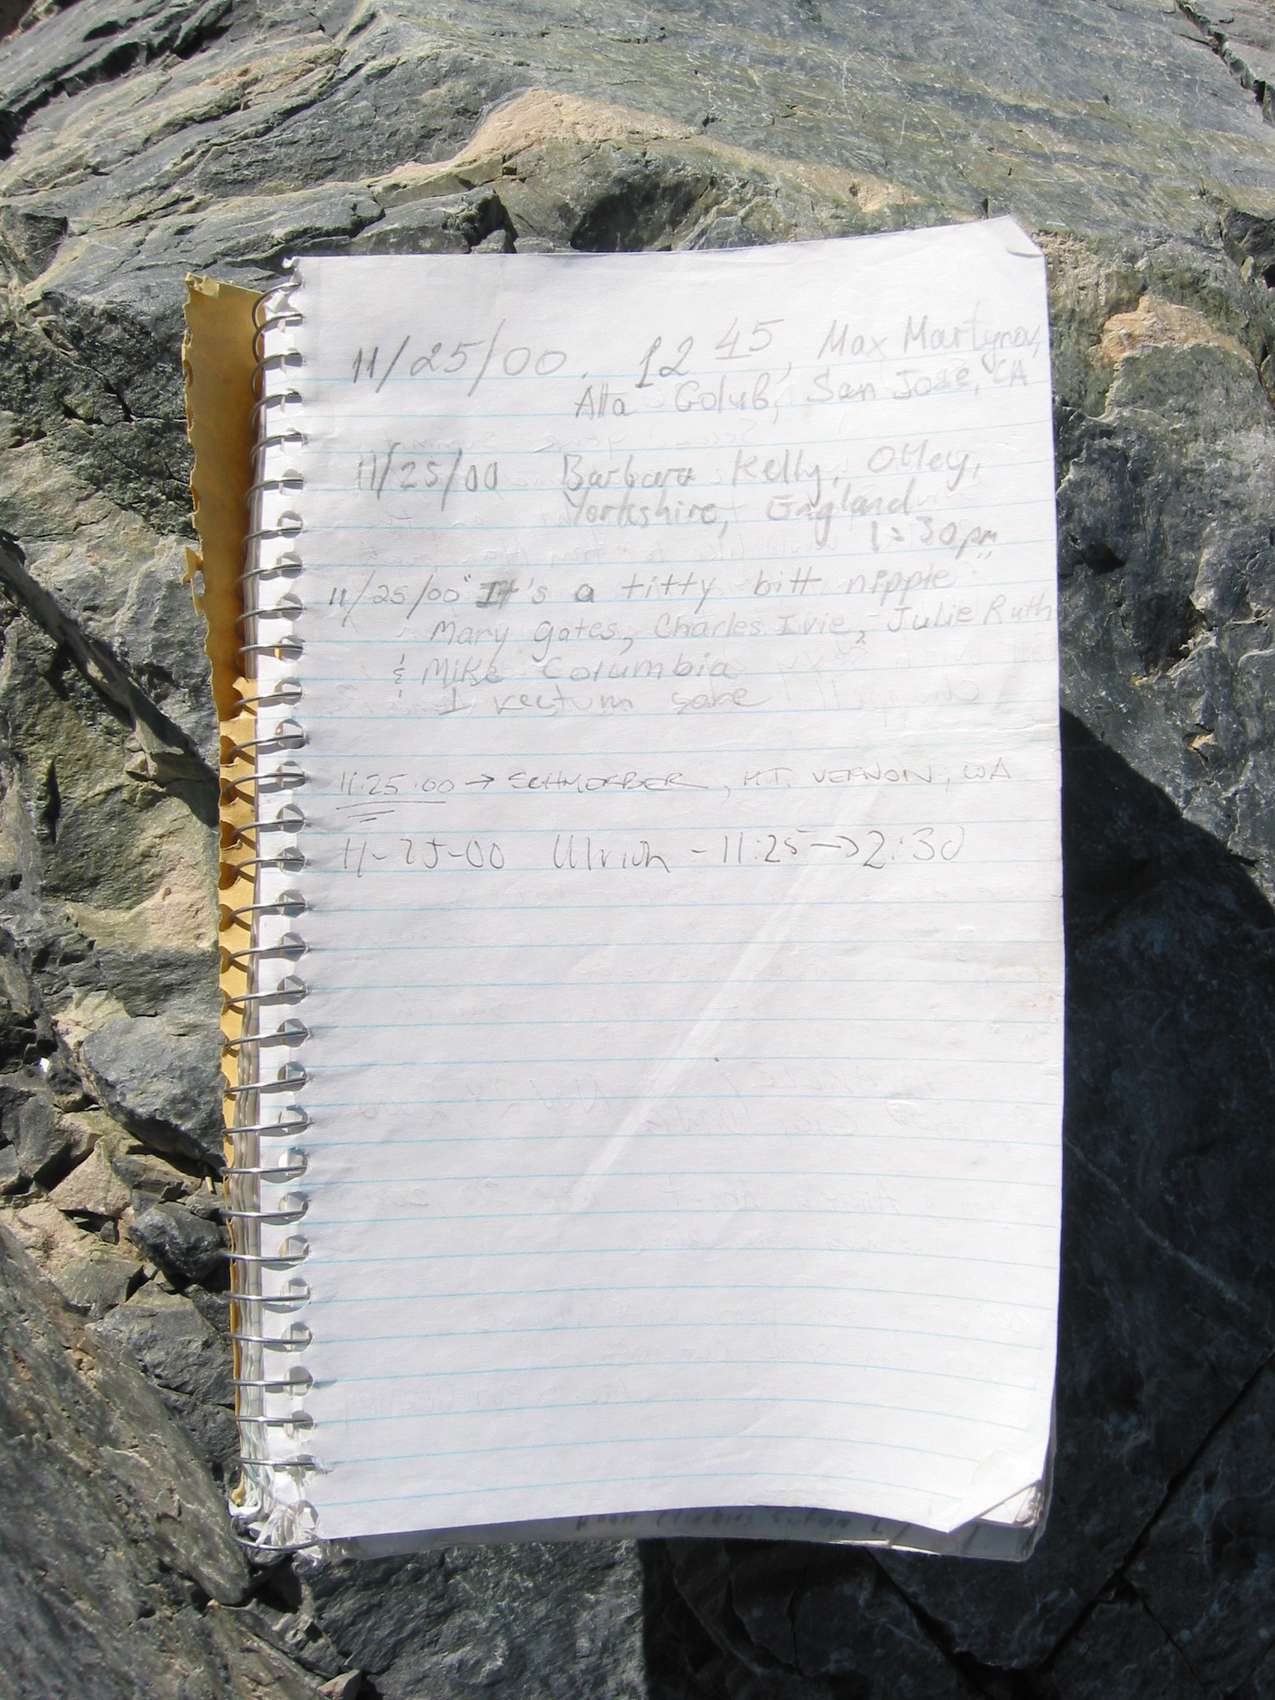 11/25/00. 12 45, Max Martynov,
Alla Golub, San Jose, CA
11/25/00 Barbara Kelly, Otley,
Yorkshire, England
1:30pm
11/25/00 "It's a titty bitt nipple"
Mary Gates, Charles Irie, Julie Ruth
& Mike Columbia
1 rectum sore
11.25.00 → SCHMOEBER, MT. VERNON, WA
11-25-00 Ulrich - 11:25 → 2:30